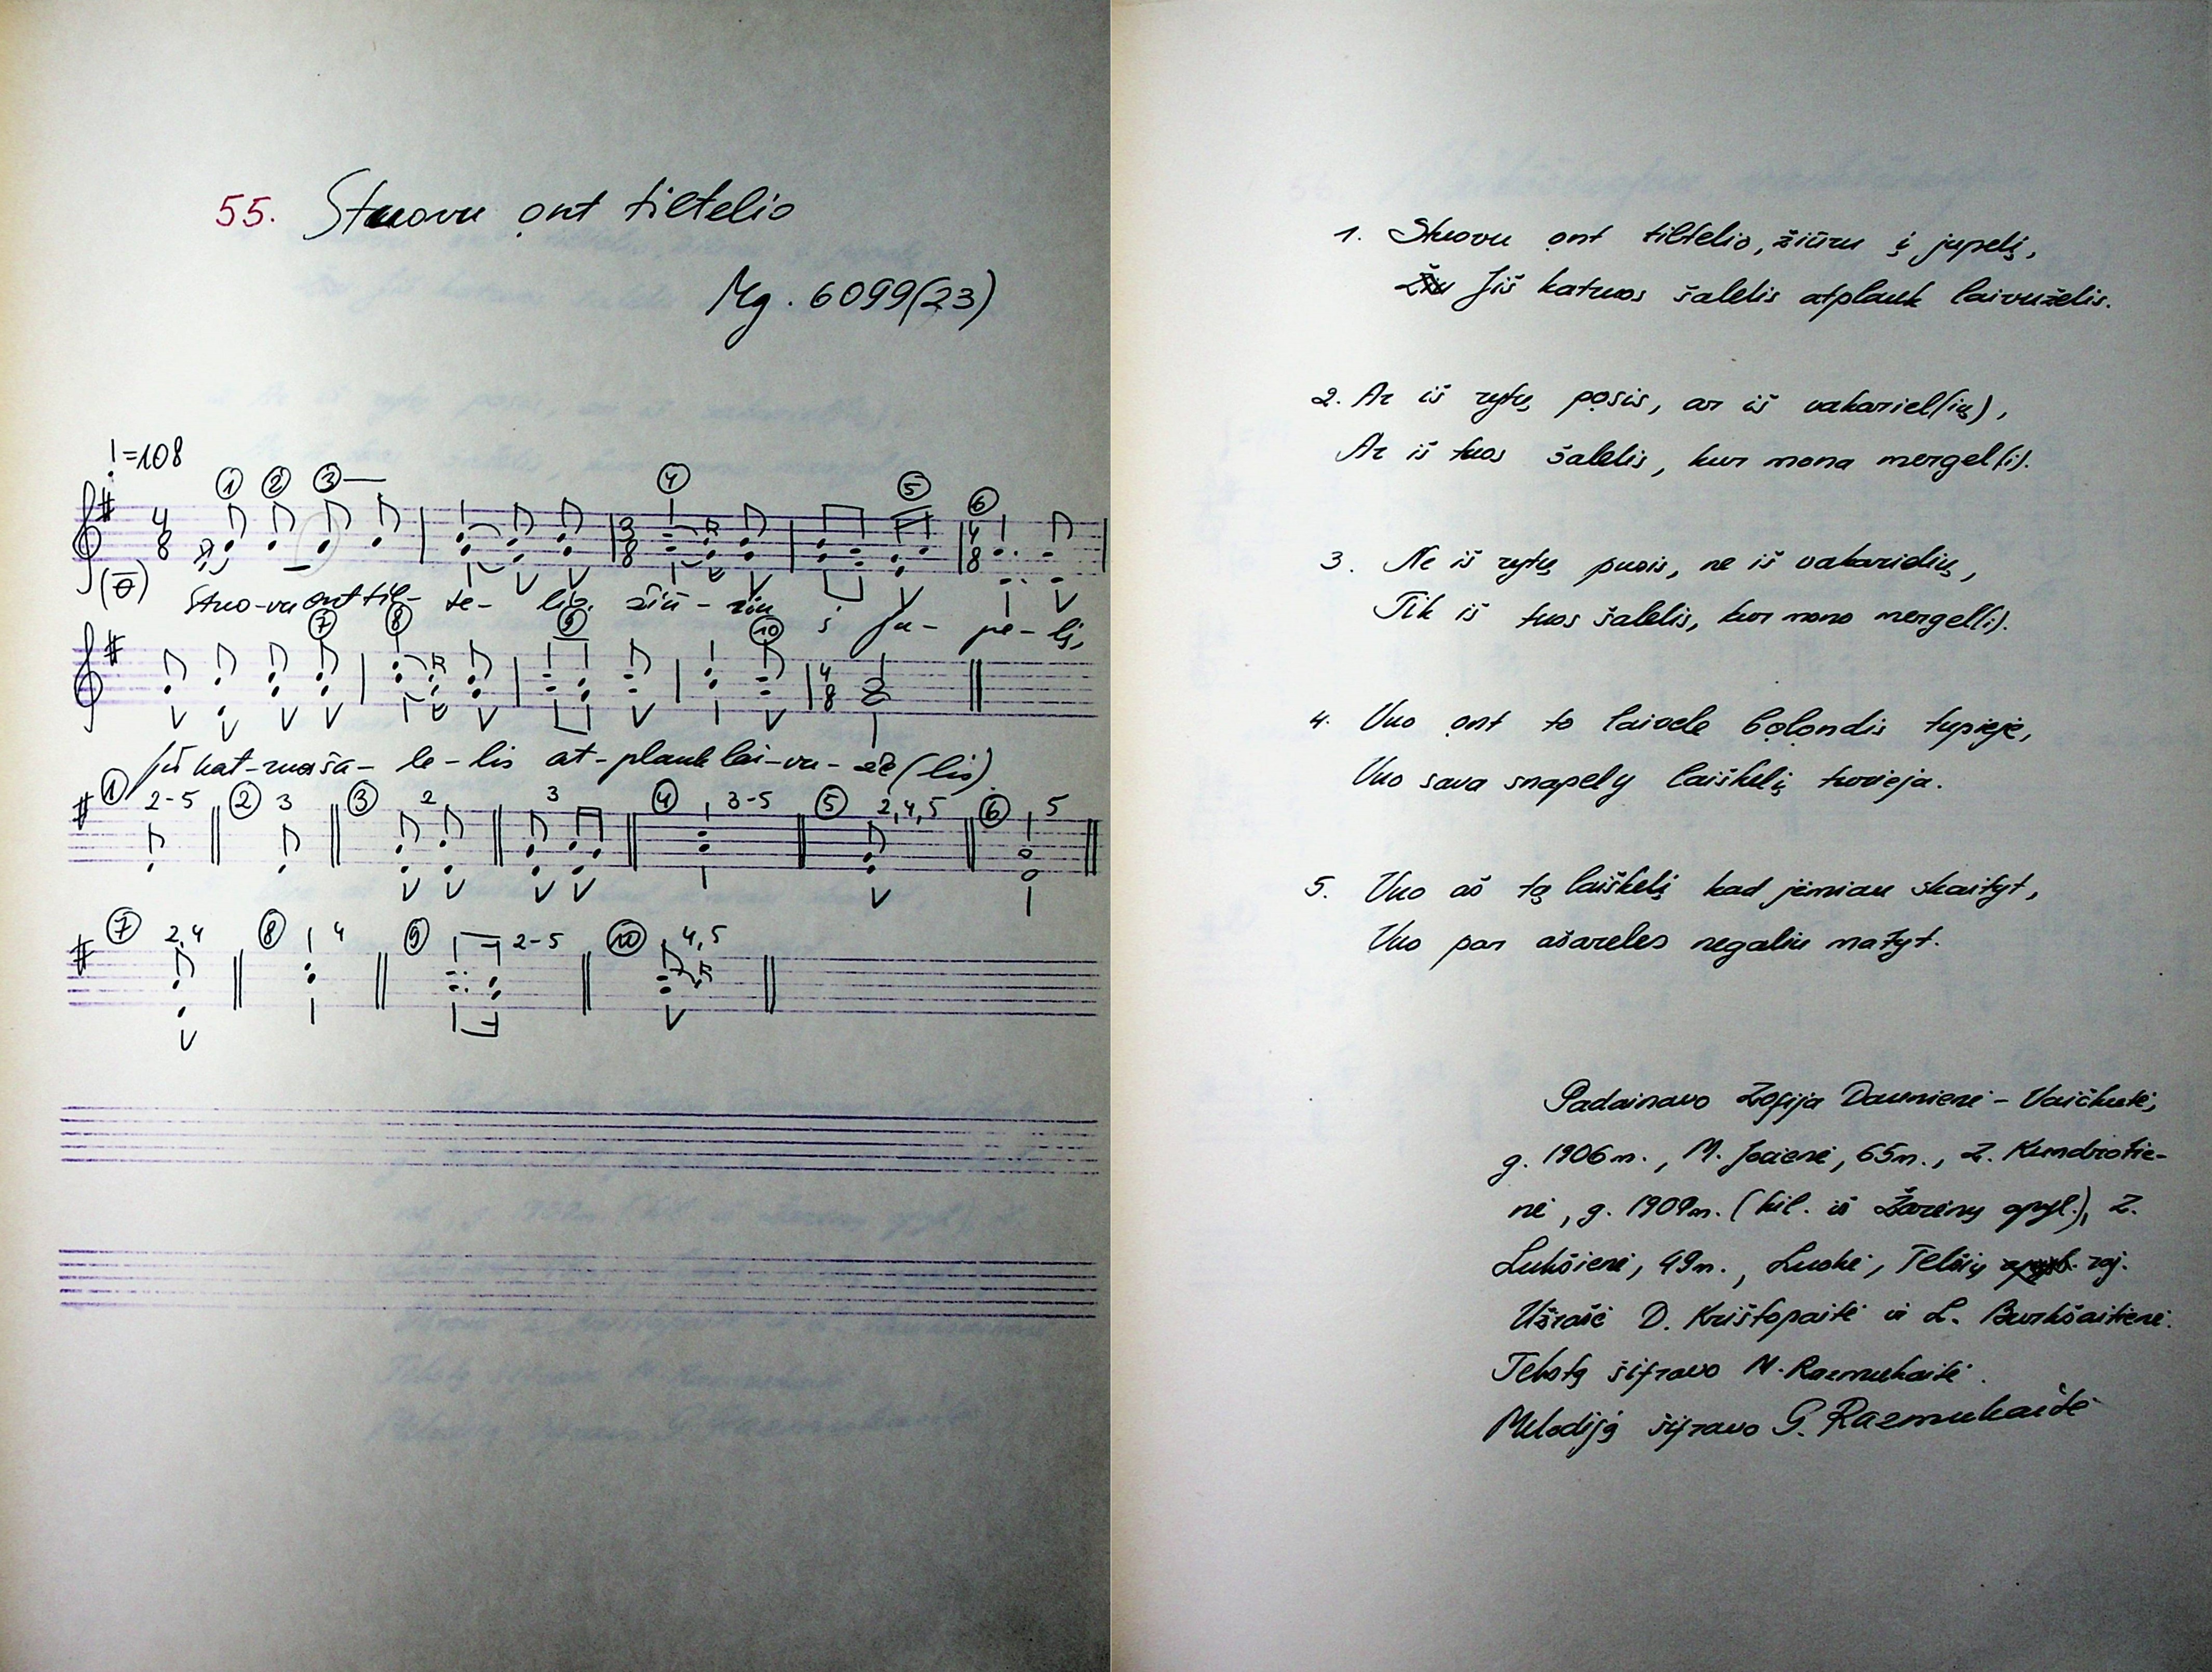 55. Stuovu ont tiltelio
Mg. 6099(23)
=108
① ② ③ ④ ⑤ ⑥
4 8 3 8 4 8
Stuo-vu ont til- te- lio, žiū-riu į ju- pe-lį,
⑦ ⑧ ⑨ ⑩
4 8
Jiš kat-ruos ša- le-lis at-plauk lai-vu-že(lis).
① 2-5 ② 3 ③ 2 3 ④ 3-5 ⑤ 2,4,5 ⑥ 5
⑦ 2,4 ⑧ 4 ⑨ 2-5 ⑩ 4,5
1. Stuovu ont tiltelio, žiūru į jupelį,
Jiš katruos šalelis atplauk laivuželis.
2. Ar iš rytų posis, ar iš vakariel(ių),
Ar iš tuos šalelis, kur mona mergel(i).
3. Ne iš rytų pusis, ne iš vakarielių,
Tik iš tuos šalelis, kur mono mergel(i).
4. Vuo ont to laivele bolondis tupieje,
Vuo sava snapely laiškelį turieja.
5. Vuo aš tą laiškelį kad jėmiau skaityt,
Vuo par ašareles negaliu matyt.
Padainavo Zofija Daunienė - Vaičkutė,
g. 1906m., M. Jocienė, 65m., Z. Kundrotie-
nė, g. 1909m. (kil. iš Žarėnų apyl.), Z.
Lukšienė, 49m., Luokė, Telšių raj.
Užrašė D. Krištopaitė ir L. Burkšaitienė.
Tekstą šifravo N. Razmukaitė.
Melodiją šifravo G. Razmukaitė